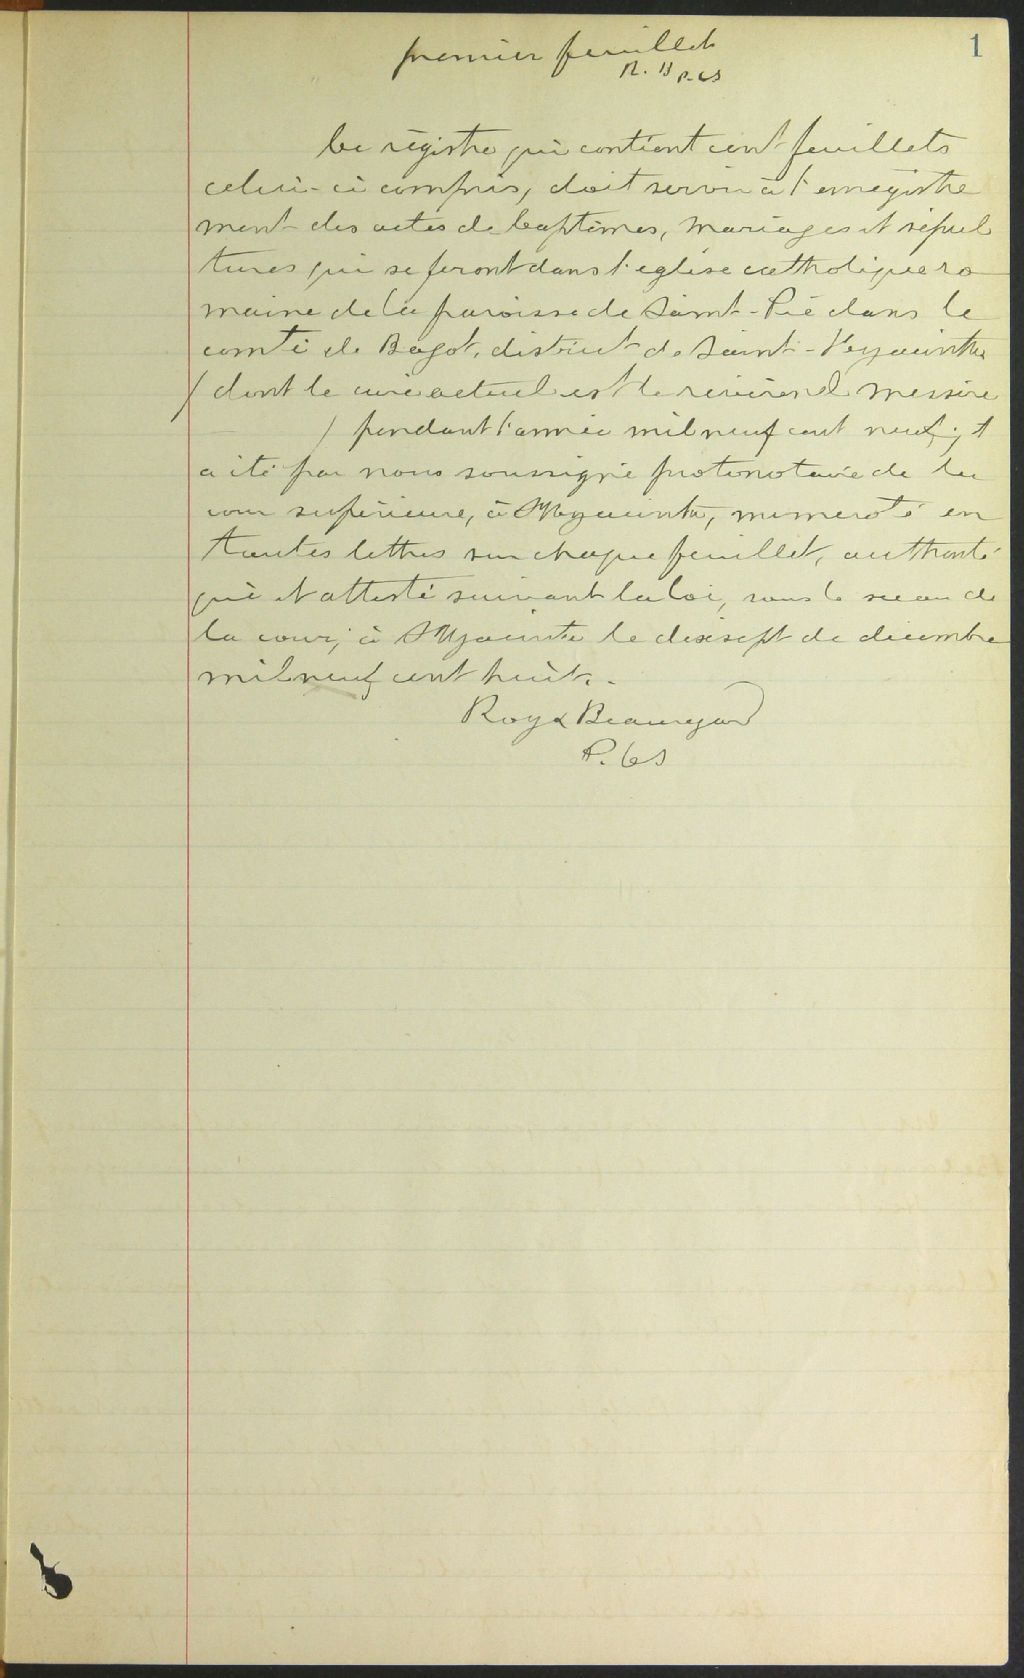 premier feuillet
1
R. B P. CS
Ce régistre qui contient cent feuillets
celui-ci compris, doit servir à l'enrégistre
ment des actes de baptêmes, mariages et sépul
tures qui se feront dans l'église catholique ro
maine de la paroisse de Saint-Pie dans le
comté de Bagot, district de Saint-Hyacinthe
/ dont le curé actuel est le révérend messire
/ pendant l'année mil neuf cent neuf; et
a été par nous soussigné protonotaire de la
cour supérieure, à St Hyacinthe, numeroté en
toutes lettres sur chaque feuillet, authenti
qué et attesté suivant la loi, sous le sceau de
la cour, à St Hyacinthe le dixsept de décembre
mil neuf cent huit. -
Roy & Beauregard
P. CS